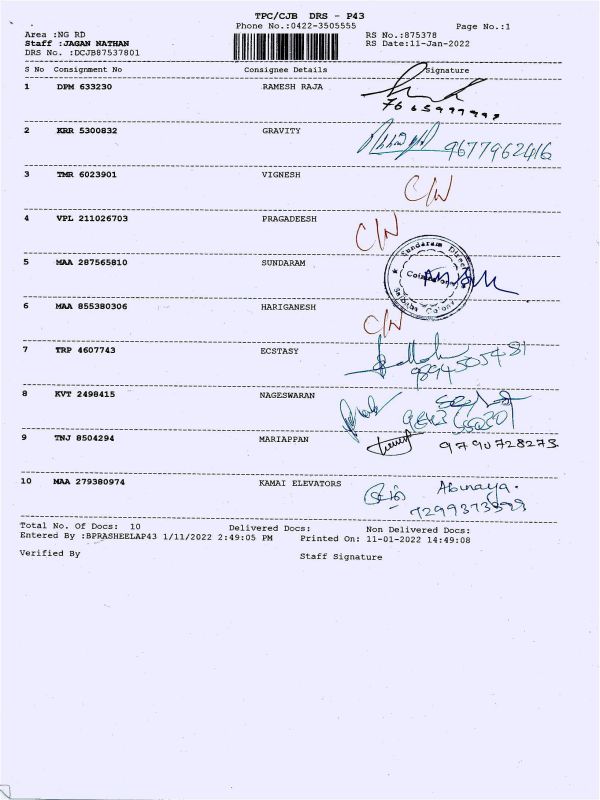 TPC/CJB DRS - P43
Phone No.:0422-3505555
Page No.:1
Area :NG RD
Staff :JAGAN NATHAN
DRS No. :DCJB87537801
RS No.:875378
RS Date:11-Jan-2022
S No Consignment No Consignee Details Signature
1 DPM 633230 RAMESH RAJA
2 KRR 5300832 GRAVITY 9677962416
3 TMR 6023901 VIGNESH C/N
4 VPL 211026703 PRAGADEESH C/N
5 MAA 287565810 SUNDARAM
Sundaram Direct
Saibaba Colony
6 MAA 855380306 HARIGANESH C/N
7 TRP 4607743 ECSTASY
8 KVT 2498415 NAGESWARAN
9 TNJ 8504294 MARIAPPAN 9790728273
10 MAA 279380974 KAMAI ELEVATORS Abinaya.
Total No. Of Docs: 10 Delivered Docs: Non Delivered Docs:
Entered By :BPRASHEELAP43 1/11/2022 2:49:05 PM Printed On: 11-01-2022 14:49:08
Verified By Staff Signature